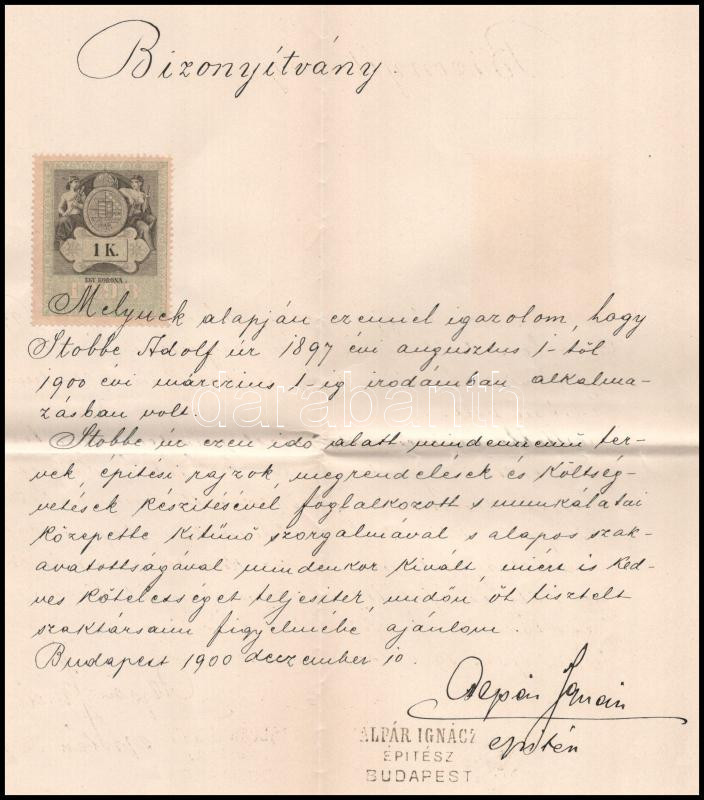 Bizonyítvány.
1 K.
EGY KORONA
Melynek alapján ezennel igazolom, hogy
Stobbe Adolf úr 1897 évi augusztus 1-től
1900 évi márczius 1-ig irodámban alkalma-
zásban volt.
darabanth
Stobbe úr ezen idő alatt mindennemű ter-
vek, építési rajzok, megrendelések és költség-
vetések készítésével foglalkozott s munkálatai
közepette kitünő szorgalmával s alapos szak-
avatottságával mindenkor kivált, miért is ked-
ves kötelességet teljesitek, midőn őt tisztelt
szaktársaim figyelmébe ajánlom.
Budapest 1900 deczember 10.
Alpár Ignácz
építész
ALPÁR IGNÁCZ
ÉPITÉSZ
BUDAPEST